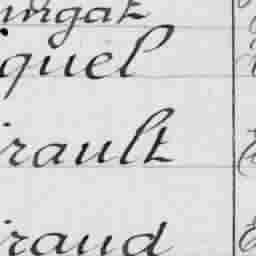 ingat
quel
irault
iraud